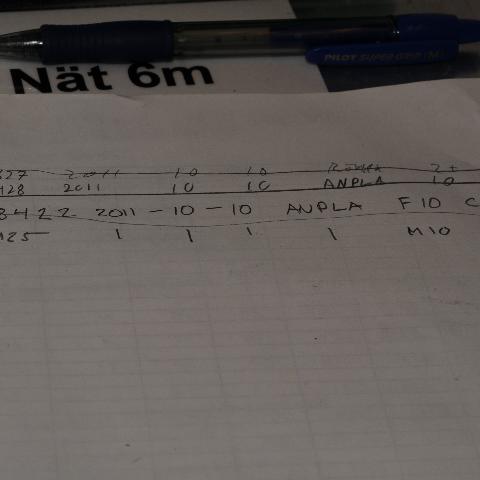 PILOT SUPER GRIP (M)
Nät 6m
327 2011 10 10 2+
428 2011 10 10 ANPLA 10
3422 2011-10-10 ANPLA F10 C
425 | | | | M10